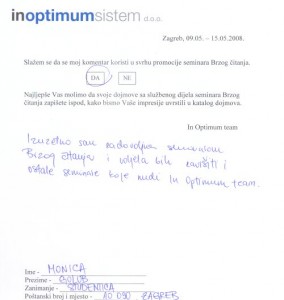 inoptimumsistem d.o.o.
Zagreb, 09.05. – 15.05.2008.
Slažem se da se moj komentar koristi u svrhu promocije seminara Brzog čitanja.
DA NE
Najljepše Vas molimo da svoje dojmove sa službenog dijela seminara Brzog
čitanja zapišete ispod, kako bismo Vaše impresije uvrstili u katalog dojmova.
In Optimum team
Izuzetno sam zadovoljna seminarom
Brzog čitanja i voljela bih završiti i
ostale seminare koje nudi In Optimum team.
Ime - MONICA
Prezime - GOLUB
Zanimanje - STUDENTICA
Poštanski broj i mjesto - 10 090 ZAGREB